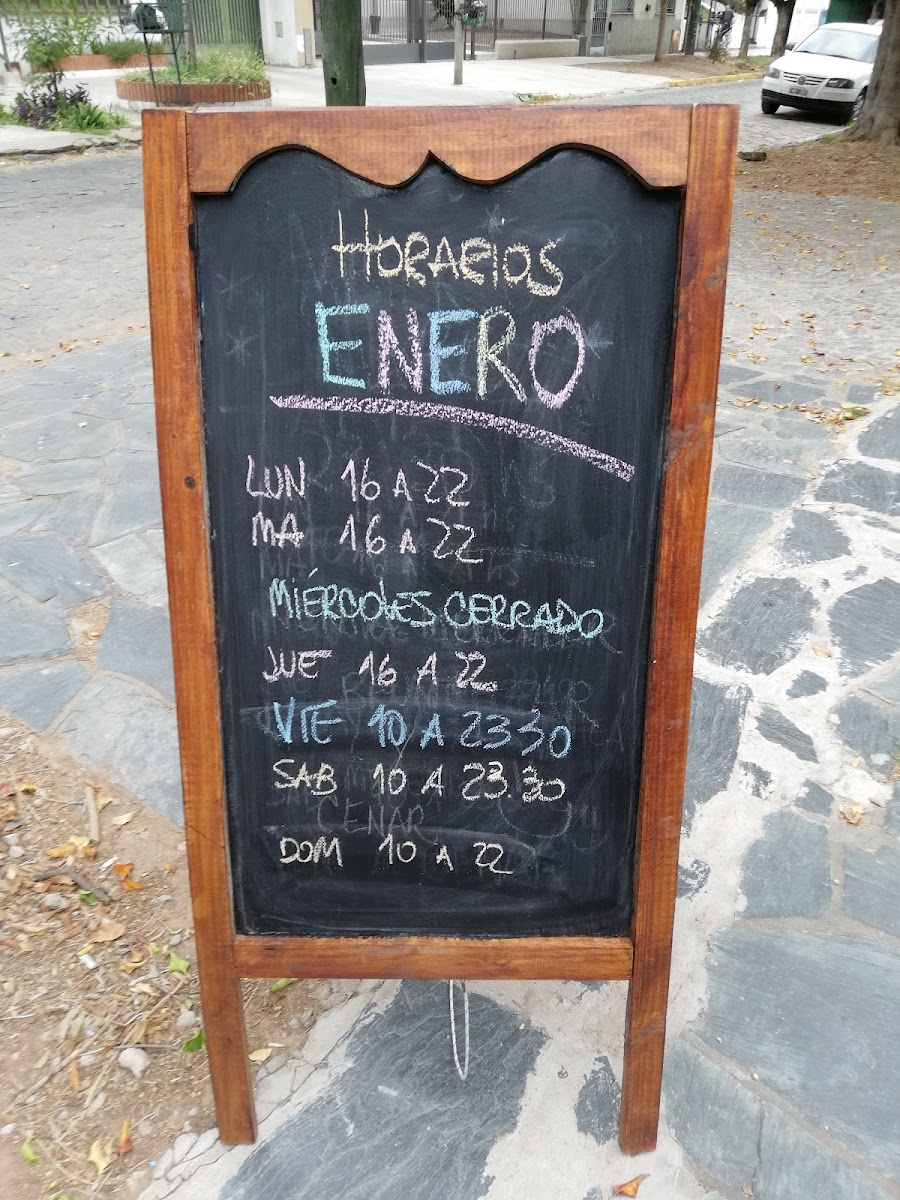 HORARIOS
ENERO
LUN 16 A 22
MA 16 A 22
MIÉRCOLES CERRADO
JUE 16 A 22
VIE 10 A 23 30
SAB 10 A 23.30
CENAR
DOM 10 A 22